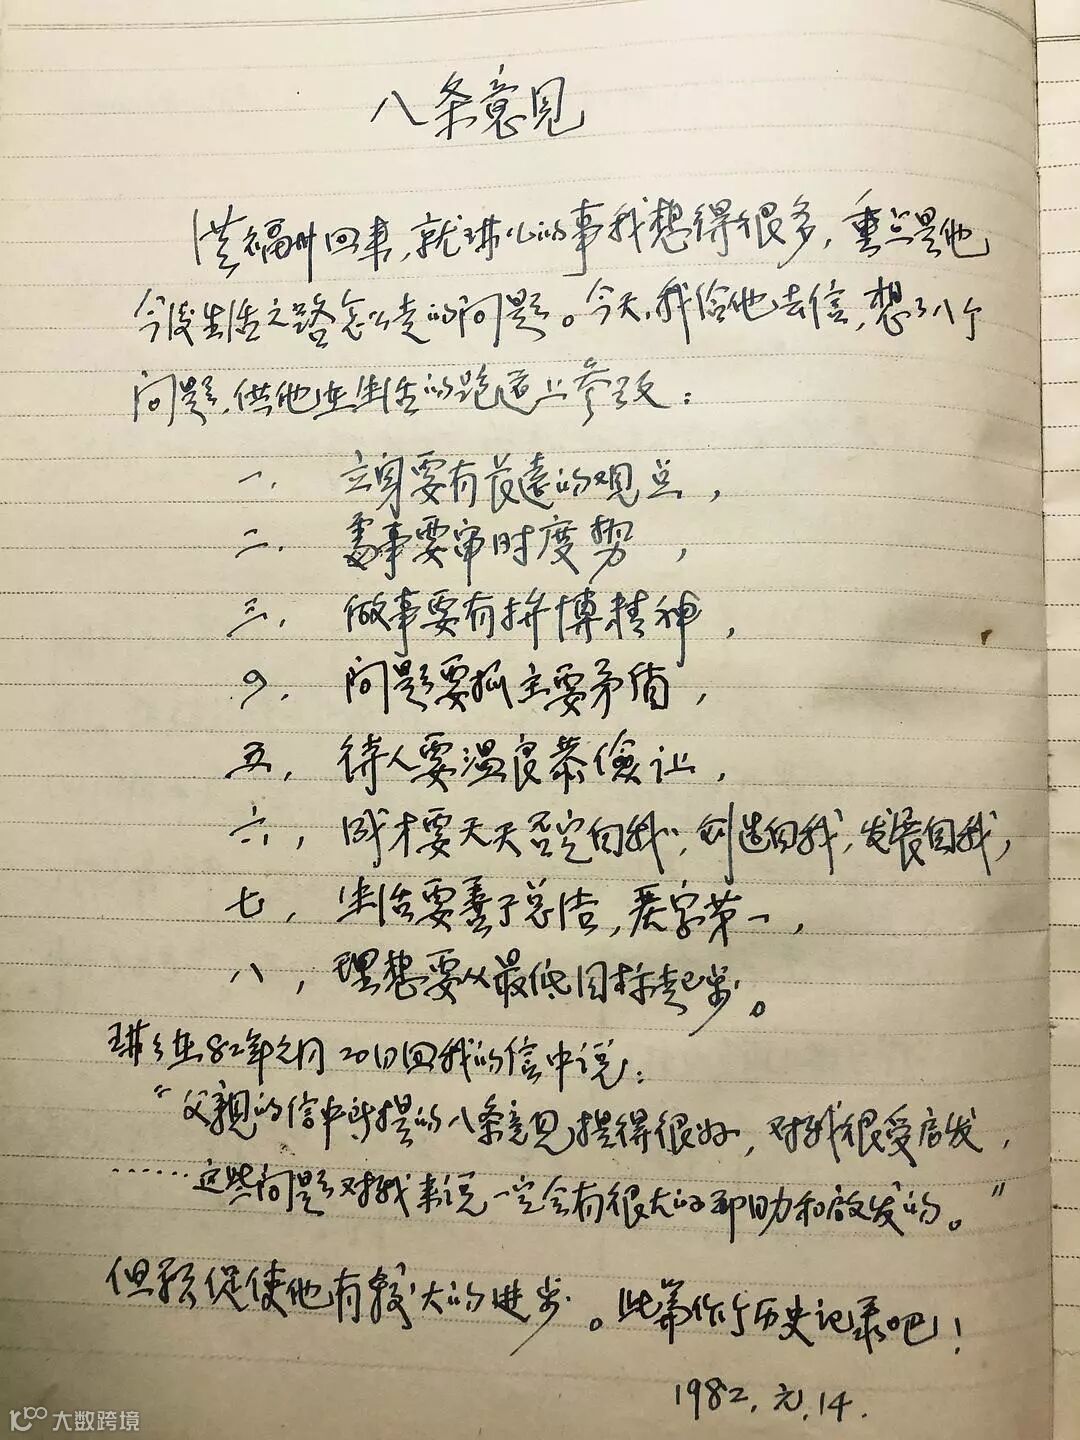 八条意见
福州回来,就琳儿的事我想得很多,重点是他
今后生活之路怎么走的问题。今天,我给他去信,想了八个
问题,供他在生活的跑道上参改:
一、 立身要有长远的观点,
二、 处事要审时度势,
三、 做事要有拼博精神,
四、 问题要抓主要矛盾,
五、 待人要温良恭俭让,
六、 成才要天天否定自我,创造自我,发展自我,
七、 生活要善于总结,严字第一,
八、 理想要从最低目标起步。
琳儿在82年元月20日回我的信中说:
“父亲的信中所提的八条意见提得很好,对我很受启发,
……这些问题对我来说一定会有很大的帮助和启发的。”
但愿促使他有较大的进步。此篇作个历史记录吧!
1982.元.14.
大数跨境